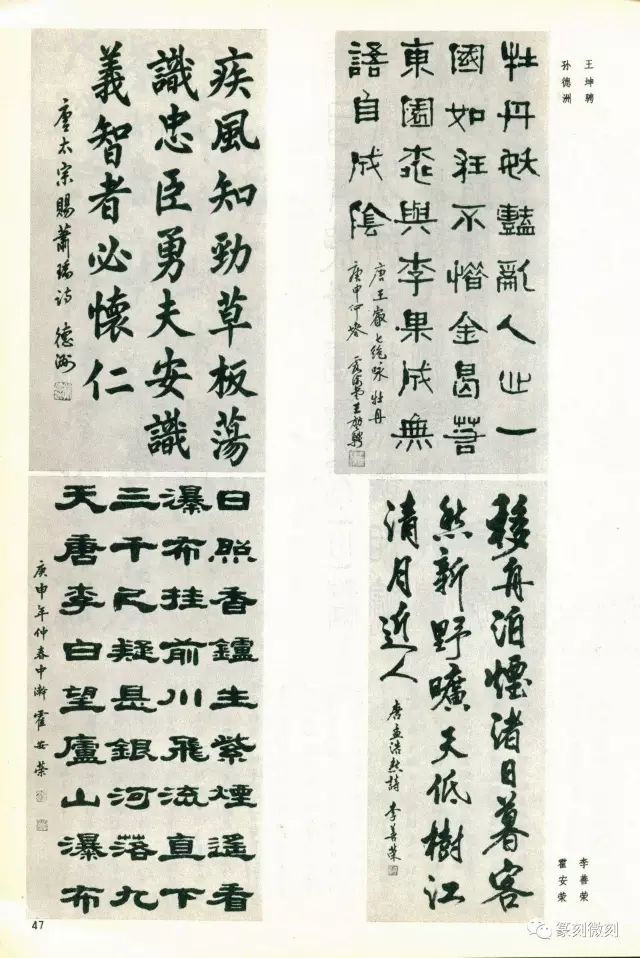 王坤骋
孙德洲
牡丹妖豔亂人心一
國如狂不惜金曷若
東園桃與李果成無
語自成陰
唐王叡七绝咏牡丹
庚申仲春
疾風知勁草板蕩
識忠臣勇夫安識
義智者必懷仁
唐太宗賜蕭瑀诗 德洲
移舟泊煙渚日暮客
愁新野曠天低樹江
清月近人
唐孟浩然詩 李善荣
日照香鑪生紫煙遥看
瀑布挂前川飛流直下
三千尺疑是銀河落九
天唐李白望廬山瀑布
庚申年仲春中澣 霍安荣
李善荣
霍安荣
47
篆刻微刻